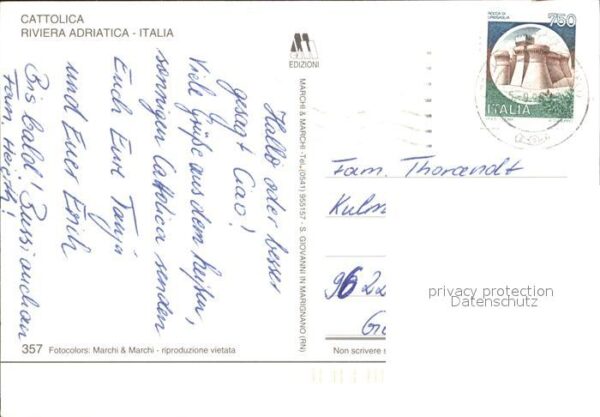 CATTOLICA
RIVIERA ADRIATICA - ITALIA
EDIZIONI
ROCCA DI URBISAGLIA
750
ITALIA
Hallo oder besser
gesagt Ciao!
Viele Grüße aus dem heißen,
sonnigen Cattolica senden
Euch Eure Tanja
und Euer Erich
Bis bald! Bussi auch an
Fam.
MARCHI & MARCHI - Tel. (0541) 955157 - S. GIOVANNI IN MARIGNANO (RN)
Fam. Thorandt
Kulm
9622
G
privacy protection
Datenschutz
357 Fotocolors: Marchi & Marchi - riproduzione vietata
Non scrivere s